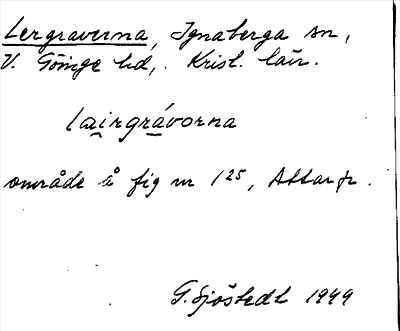 Lergraverna, Ignaberga sn,
V. Göinge hd,. Krist. län.
lairgrávorna
område å fig nr 1²⁵, Attarp.
G. Sjöstedt 1949